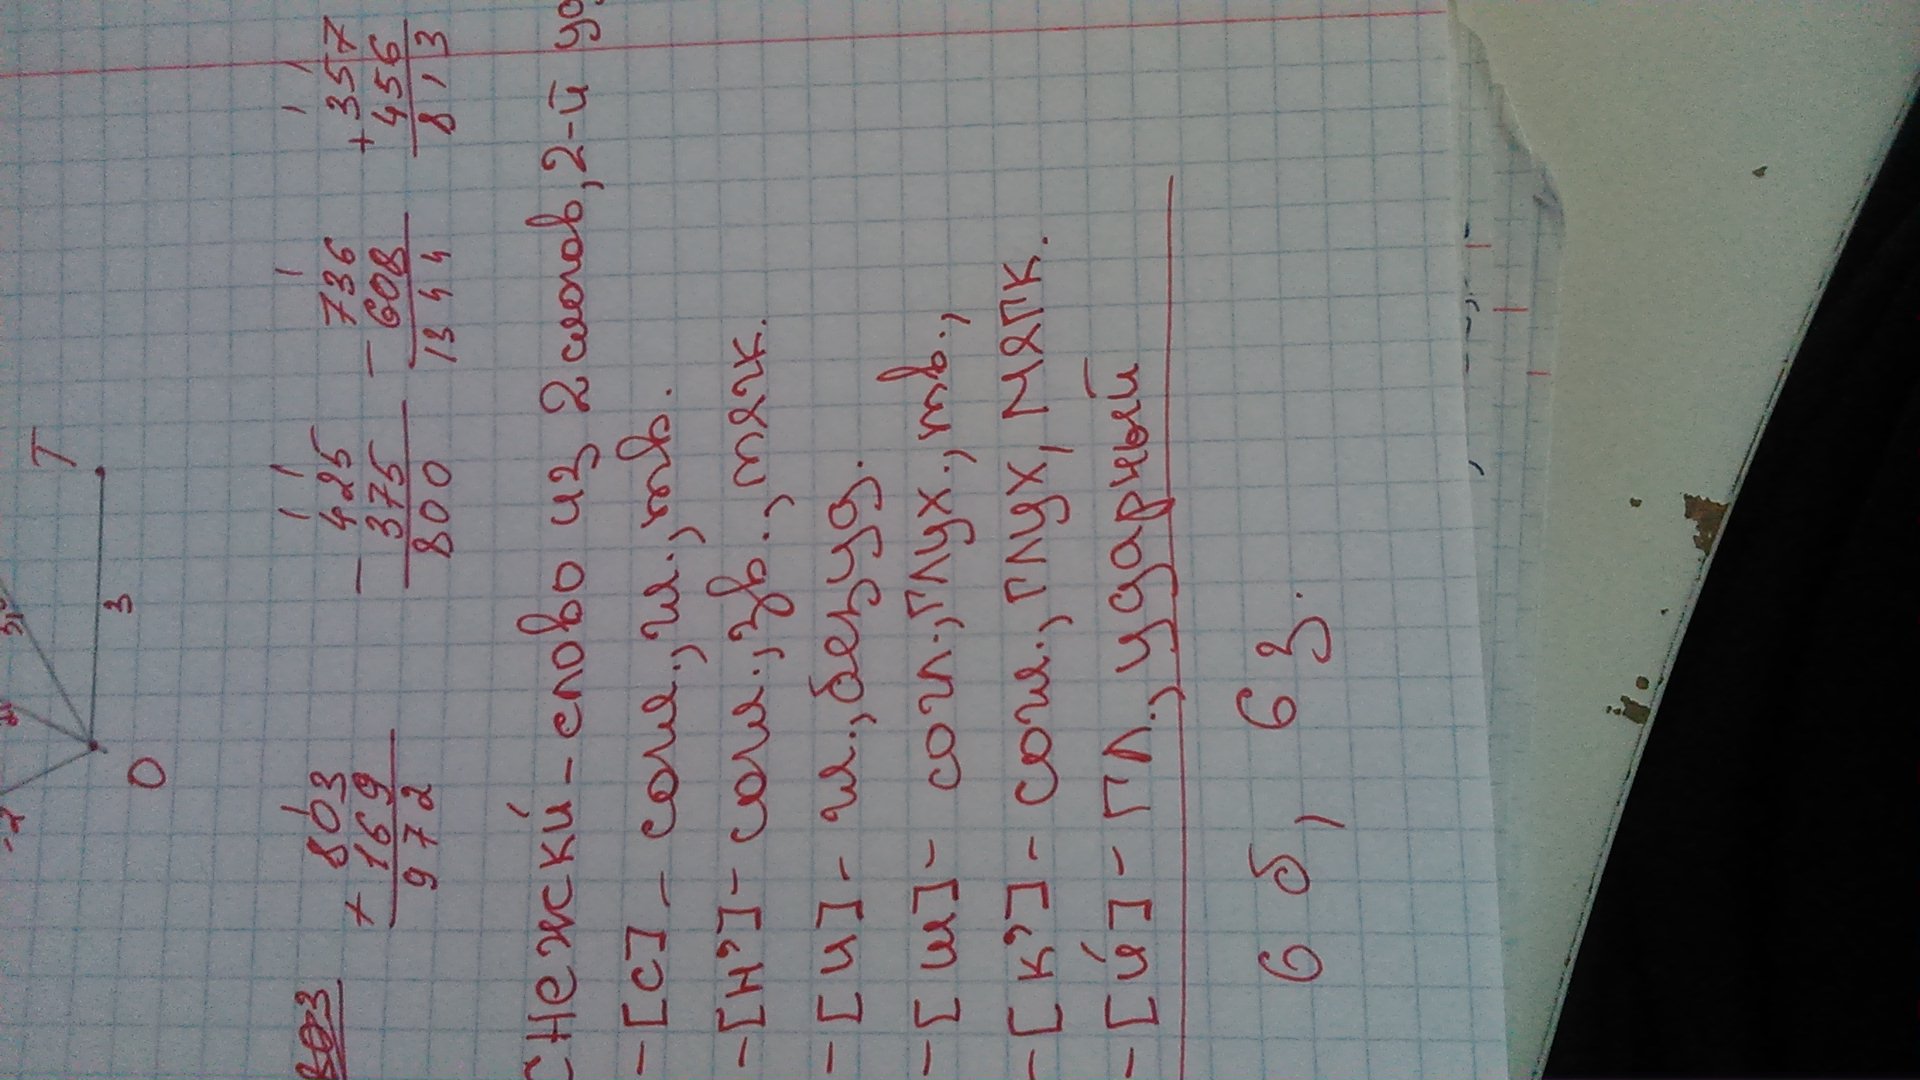 T
3
O
803
+ 803
169
972
- 425
375
800
- 736
608
13 4 4
+ 357
456
8 1 3
Снежки́ - слово из 2 слогов, 2-й уд
- [с] - согл., гл., тв.
- [н'] - согл., зв., мяж.
- [и] - гл., безуд.
- [ш] - согл., глух., тв.,
- [к'] - согл., глух, мягк.
- [и́] - гл., ударный
6 б, 6 з.